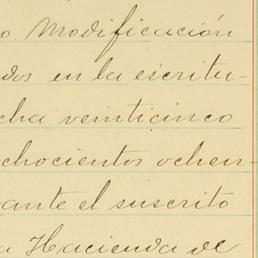 o. Modificación
dos en la escritu-
cha veinticinco
chocientos ochen-
ante el suscrito
a Hacienda de